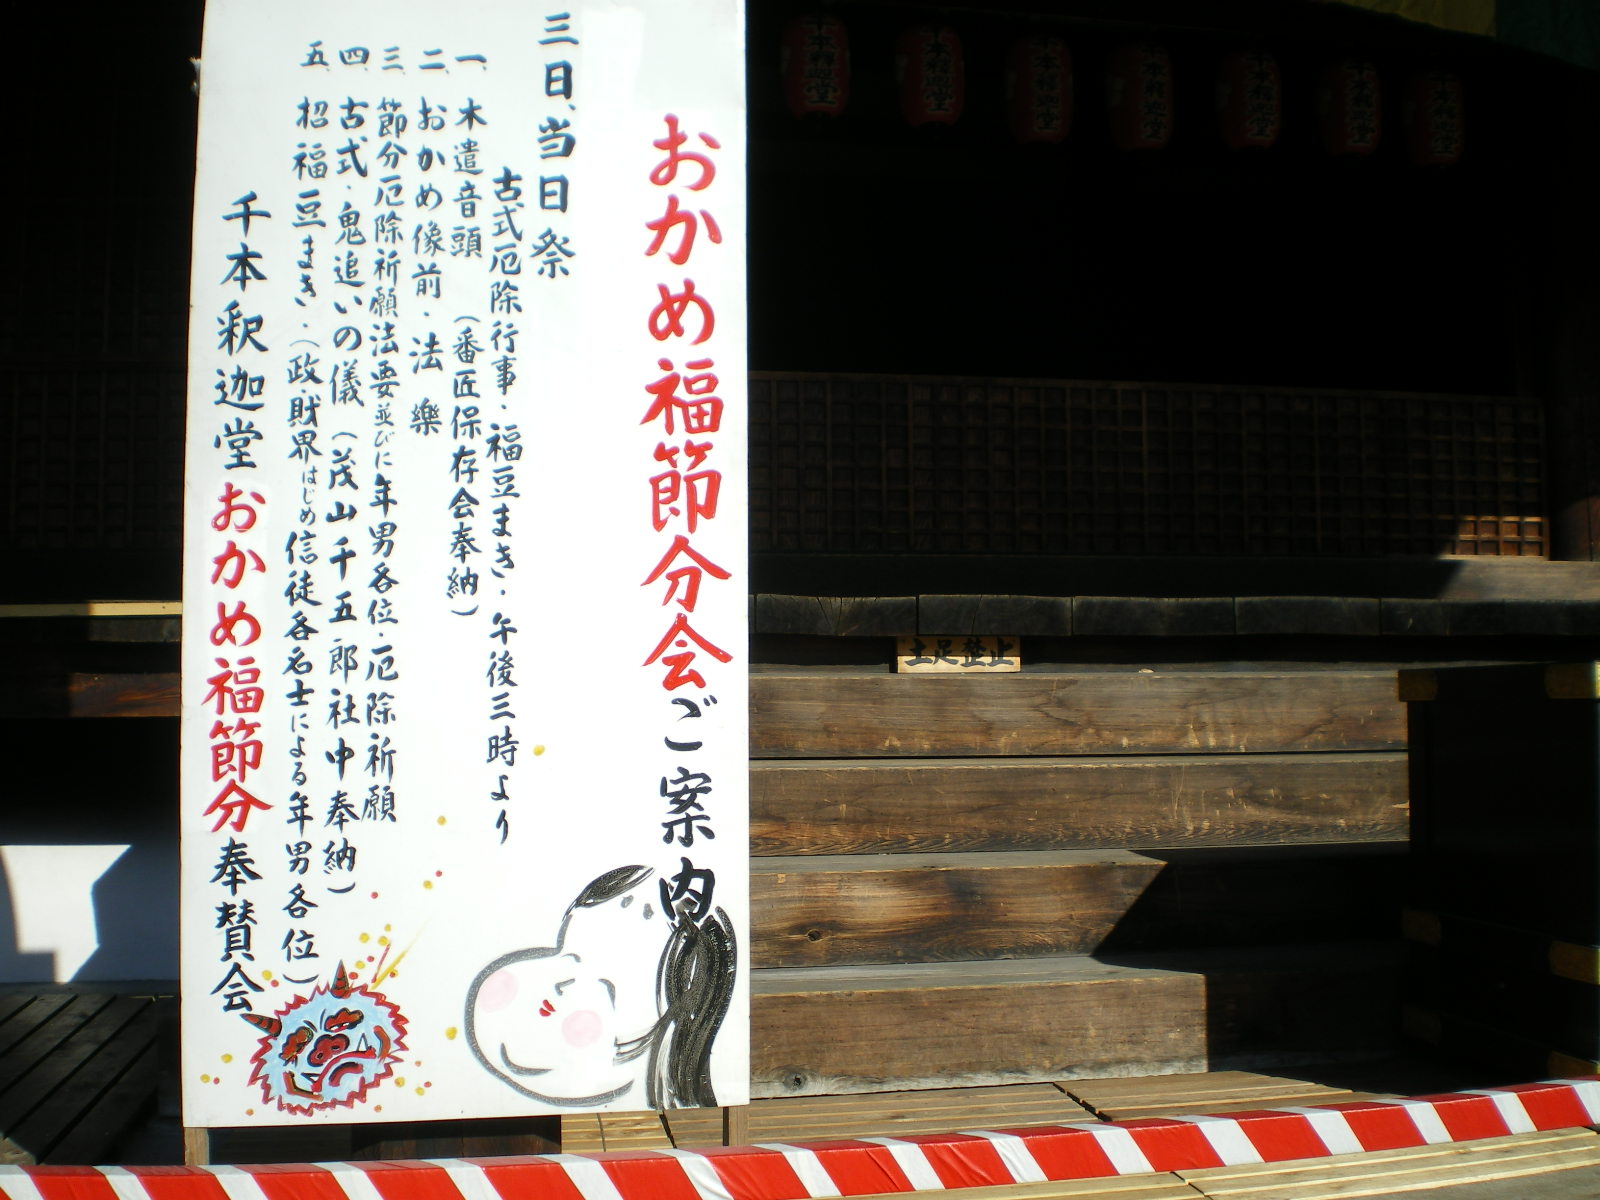 おかめ福節分会ご案内
三日、当日祭
古式厄除行事・福豆まき・午後三時より
一、木遣音頭（番匠保存会奉納）
二、おかめ像前・法樂
三、節分厄除祈願法要並びに年男各位・厄除祈願
四、古式・鬼追いの儀（茂山千五郎社中奉納）
五、招福豆まき・（政・財界はじめ信徒各名士による年男各位）
千本釈迦堂おかめ福節分奉賛会
土足禁止